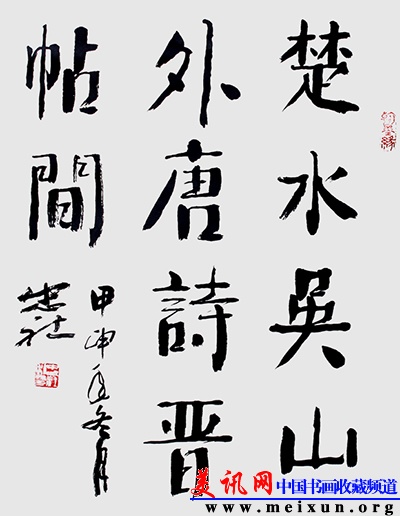 楚水吳山
外唐詩晋
帖間
甲申年冬月
美讯网 中国书画收藏频道
www.meixun.org